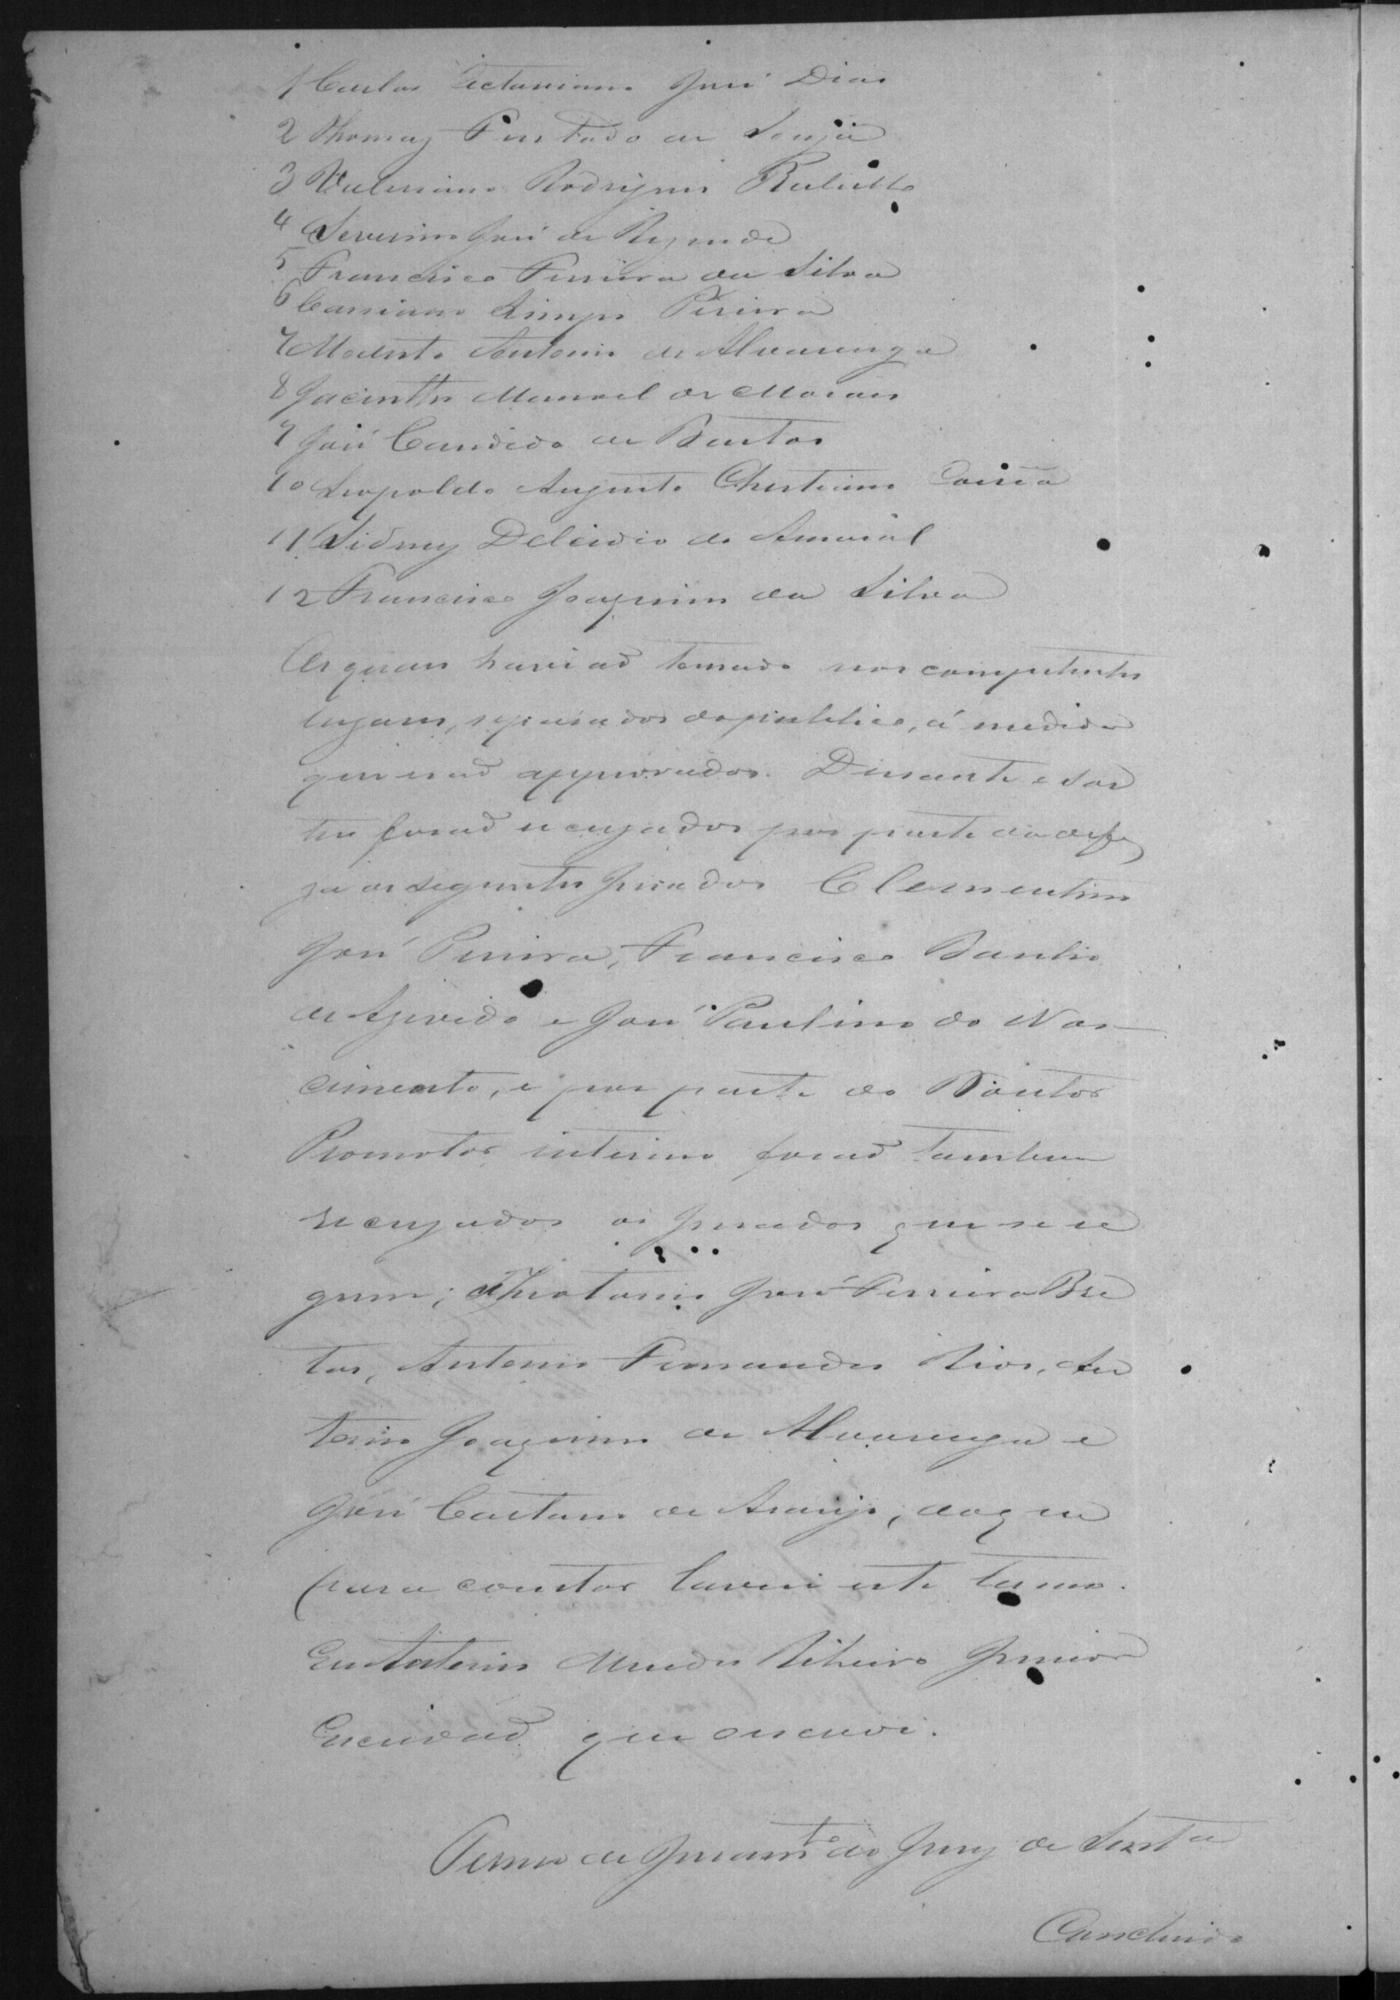 1 Carlos Octaviano José Dias
2 Thomaz Furtado de Souza
3 Valeriano Rodrigues
4 Severino José de Rezende
5 Francisco Ferreira da Silva
6 Cassiano Pereira
7 Modesto Antonio de Alvarenga
8 Jacintho Manoel de Moraes
9 José Candido de Bastos
10 Leopoldo Augusto Christiano Corrêa
11 Sidney Delcidio do Amaral
12 Francisco Joaquim da Silva
Os quaes haviaõ tomado nos competentes
lugares, separados do publico, á medida
que eraõ approvados. Durante o sor
teio foraõ recuzados por parte da defe
za os seguintes jurados Clementino
José Pereira, Francisco Basilio
de Azevedo e José Paulino do Nas
cimento, e por parte do Doutor
Promotor interino foraõ tambem
recuzados os jurados que se se
guem; Theotonio José Ferreira Bre
tas, Antonio Fernandes Rios, An
tonio Joaquim de Alvarenga e
José Caetano de Araujo, do que
para constar lavrei este termo.
Eu Antonio Mendes Ribeiro Junior
Escrivaõ que escrevi.
Termo de Juramto do Jury de Senta
Concluido